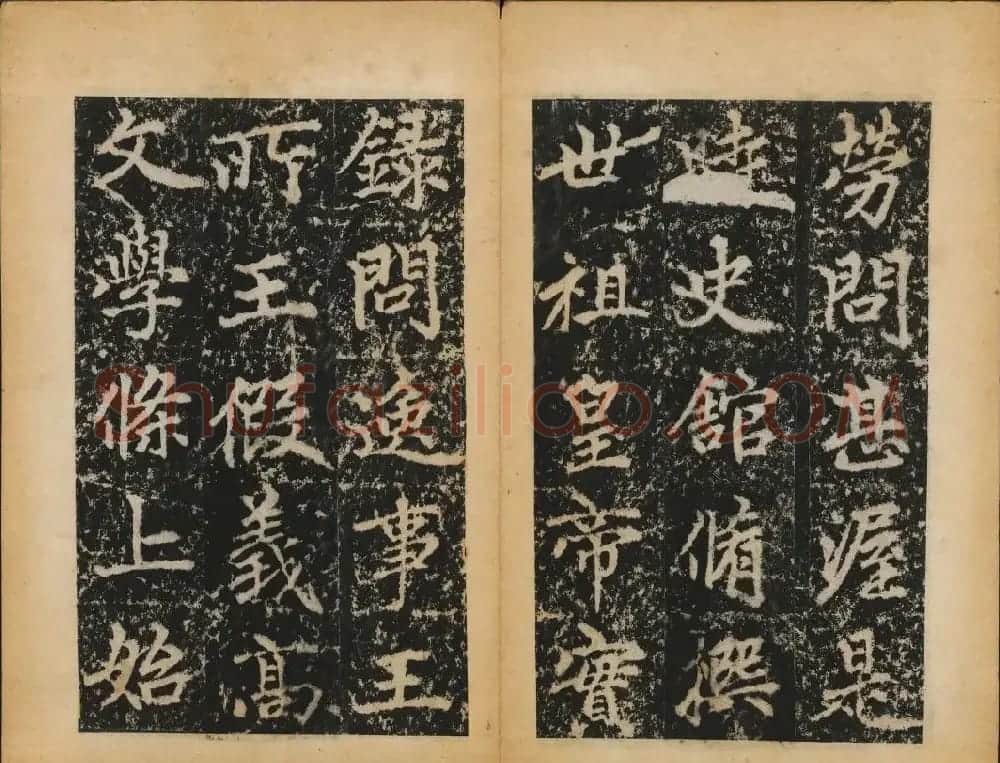 勞問甚渥是
時史館脩撰
世祖皇帝實
錄問逸事王
所王假義髙
文學條上始
Shufaziliao.COM